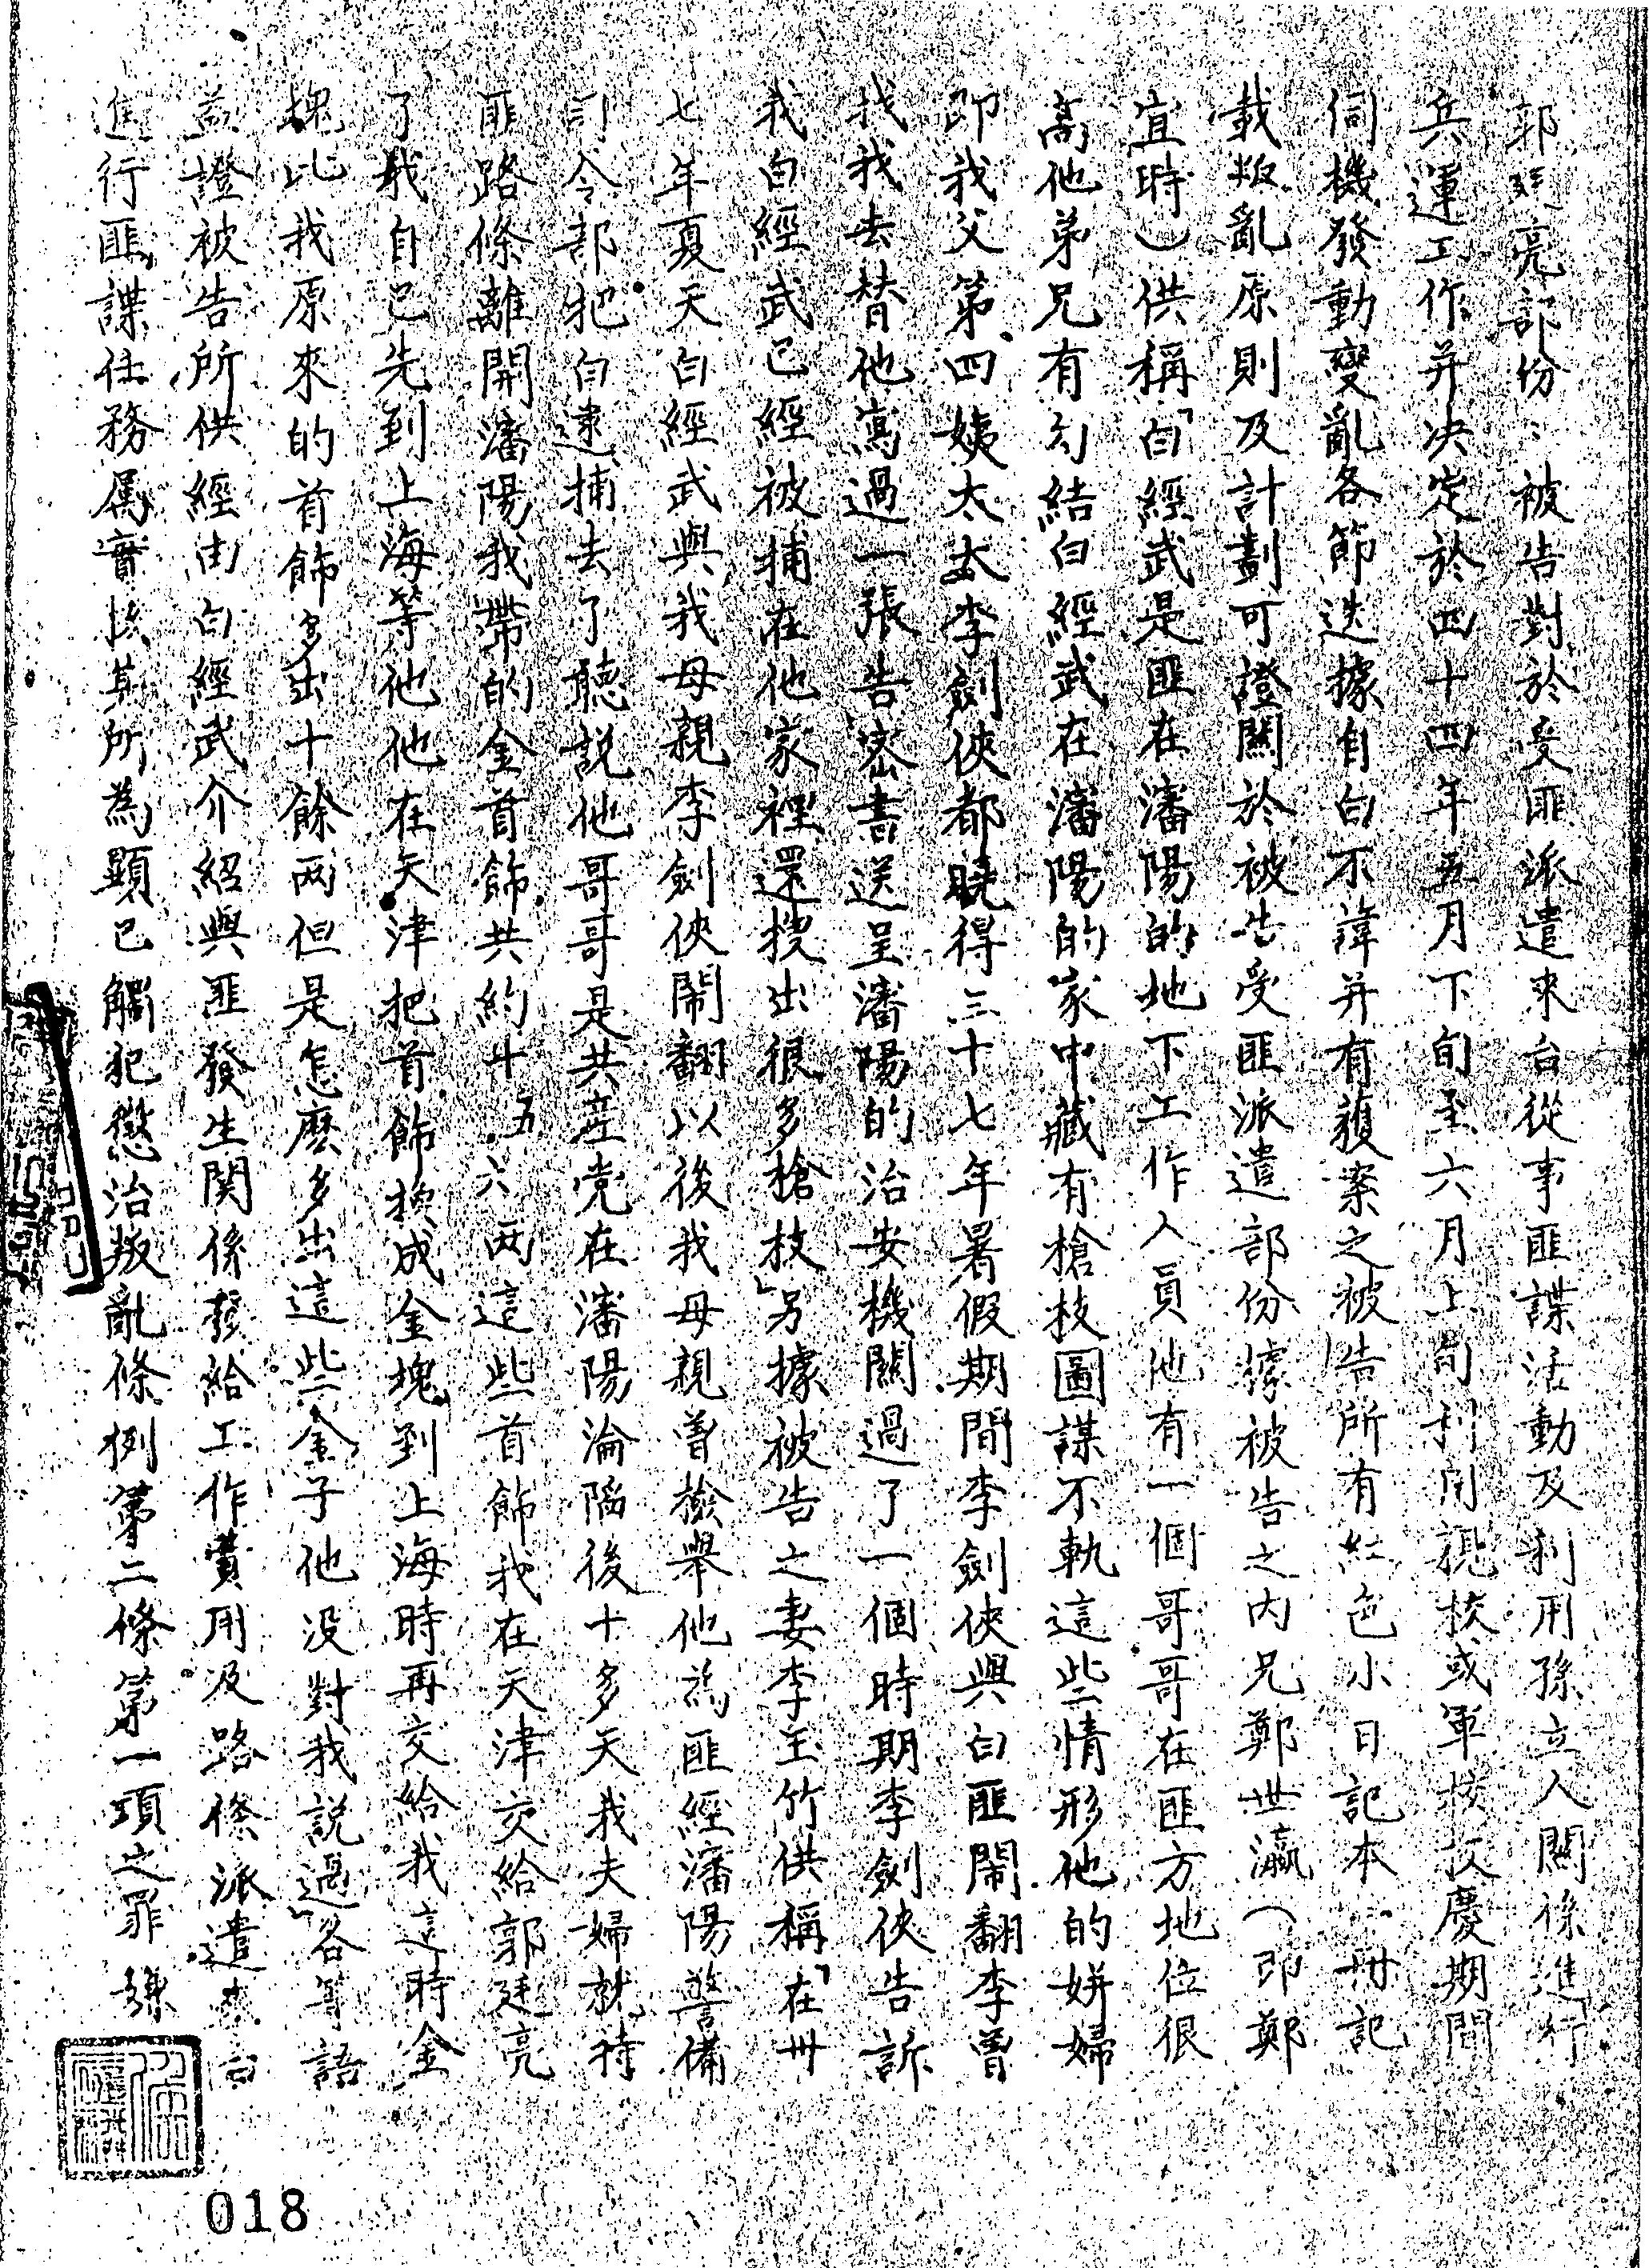 郭廷亮部份：被告對於受匪派遣來台從事匪諜活動及利用孫立人關係進行
兵運工作并决定於四十四年五月下旬至六月上旬利用親校或軍校校慶期間
伺機發動變亂各節迭據自白不諱并有獲案之被告所有紅色小日記本一冊記
載叛亂原則及計劃可證關於被告受匪派遣部份據被告之內兄鄭世瀛（即鄭
宜時）供稱「白經武是匪在瀋陽的地下工作人員他有一個哥哥在匪方地位很
高他弟兄有勾結白經武在瀋陽的家中藏有槍枝圖謀不軌這些情形他的姘婦
即我父第四姨太太李劍俠都曉得三十七年暑假期間李劍俠與白匪鬧翻李曾
找我去替他寫過一張告密書送呈瀋陽的治安機關過了一個時期李劍俠告訴
我白經武已經被捕在他家裡還搜出很多槍枝」另據被告之妻李玉竹供稱「在卅
七年夏天白經武與我母親李劍俠鬧翻以後我母親曾檢舉他為匪經瀋陽警備
司令部把白逮捕去了聽説他哥哥是共產党在瀋陽淪陷後十多天我夫婦就持
匪路條離開瀋陽我帶的金首飾共約十五六兩這些首飾我在天津交給郭廷亮
了我自己先到上海等他他在天津把首飾換成金塊到上海時再交給我這時金
塊比我原來的首飾多出十餘兩但是怎麽多出這些金子他没對我説過」各等語
益證被告所供經由白經武介紹與匪發生関係發給工作費用及路條派遣來台
進行匪諜任務属實核其所為顯已觸犯懲治叛亂條例第二條第一項之罪嫌
018